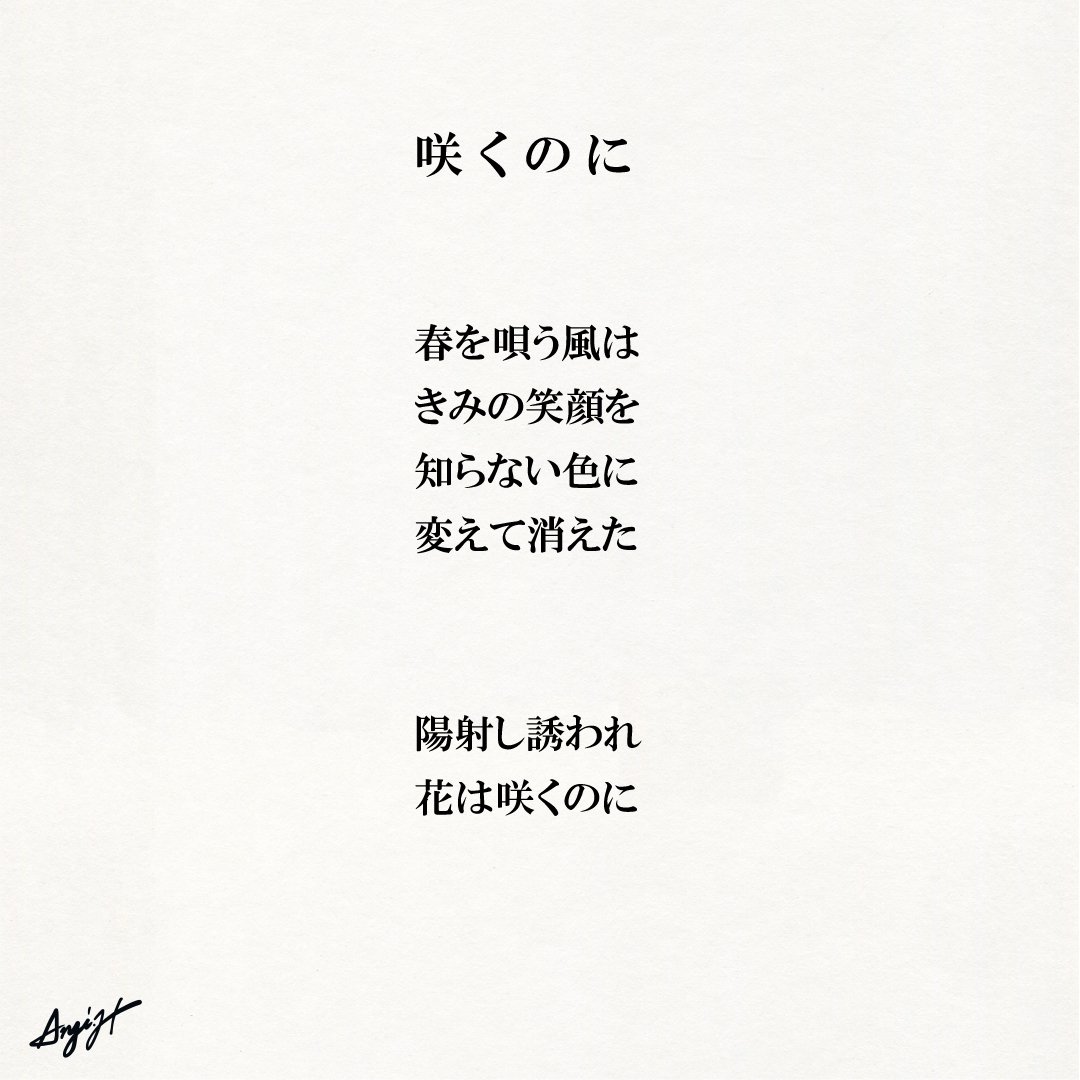 咲くのに
春を唄う風は
きみの笑顔を
知らない色に
変えて消えた
陽射し誘われ
花は咲くのに